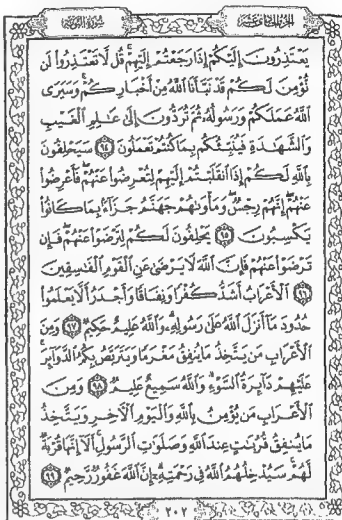 الجزء الحادي عشر
سورة التوبة
يَعْتَذِرُونَ إِلَيْكُمْ إِذَا رَجَعْتُمْ إِلَيْهِمْ قُل لَّا تَعْتَذِرُوا لَن
نُّؤْمِنَ لَكُمْ قَدْ نَبَّأَنَا اللَّهُ مِنْ أَخْبَارِكُمْ وَسَيَرَى
اللَّهُ عَمَلَكُمْ وَرَسُولُهُ ثُمَّ تُرَدُّونَ إِلَى عَالِمِ الْغَيْبِ
وَالشَّهَادَةِ فَيُنَبِّئُكُم بِمَا كُنتُمْ تَعْمَلُونَ ٩٤ سَيَحْلِفُونَ
بِاللَّهِ لَكُمْ إِذَا انقَلَبْتُمْ إِلَيْهِمْ لِتُعْرِضُوا عَنْهُمْ فَأَعْرِضُوا
عَنْهُمْ إِنَّهُمْ رِجْسٌ وَمَأْوَاهُمْ جَهَنَّمُ جَزَاءً بِمَا كَانُوا
يَكْسِبُونَ ٩٥ يَحْلِفُونَ لَكُمْ لِتَرْضَوْا عَنْهُمْ فَإِن
تَرْضَوْا عَنْهُمْ فَإِنَّ اللَّهَ لَا يَرْضَى عَنِ الْقَوْمِ الْفَاسِقِينَ
٩٦ الْأَعْرَابُ أَشَدُّ كُفْرًا وَنِفَاقًا وَأَجْدَرُ أَلَّا يَعْلَمُوا
حُدُودَ مَا أَنزَلَ اللَّهُ عَلَى رَسُولِهِ وَاللَّهُ عَلِيمٌ حَكِيمٌ ٩٧ وَمِنَ
الْأَعْرَابِ مَن يَتَّخِذُ مَا يُنفِقُ مَغْرَمًا وَيَتَرَبَّصُ بِكُمُ الدَّوَائِرَ
عَلَيْهِمْ دَائِرَةُ السَّوْءِ وَاللَّهُ سَمِيعٌ عَلِيمٌ ٩٨ وَمِنَ
الْأَعْرَابِ مَن يُؤْمِنُ بِاللَّهِ وَالْيَوْمِ الْآخِرِ وَيَتَّخِذُ
مَا يُنفِقُ قُرُبَاتٍ عِندَ اللَّهِ وَصَلَوَاتِ الرَّسُولِ أَلَا إِنَّهَا قُرْبَةٌ
لَّهُمْ سَيُدْخِلُهُمُ اللَّهُ فِي رَحْمَتِهِ إِنَّ اللَّهَ غَفُورٌ رَّحِيمٌ ٩٩
٢٠٢